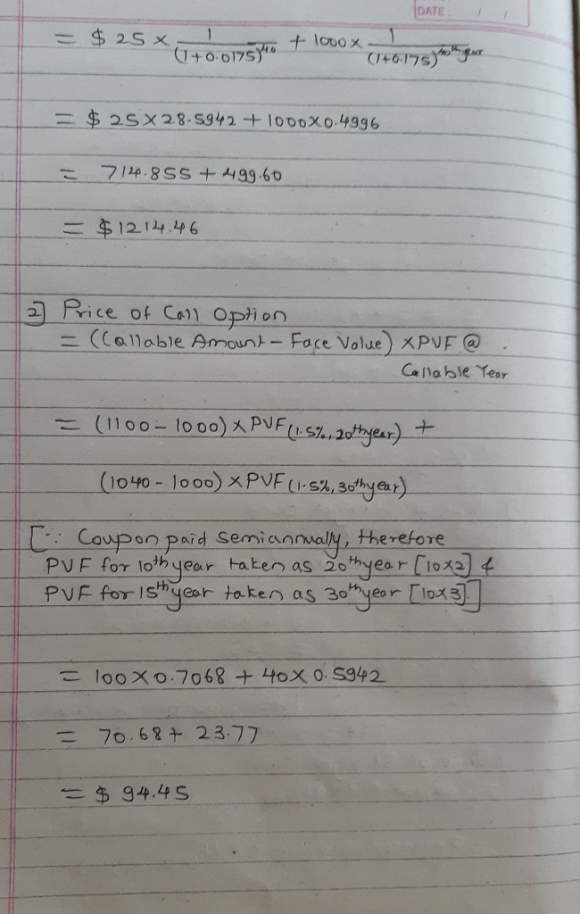 DATE: / /
= $ 25 × 1/(1+0.0175)^40 + 1000 × 1/(1+0.175)^40th year
= $ 25 × 28.5942 + 1000 × 0.4996
= 714.855 + 499.60
= $ 1214.46
2] Price of Call Option
= (Callable Amount - Face Value) × PVF @
Callable Year
= (1100 - 1000) × PVF (1.5%, 20th year) +
(1040 - 1000) × PVF (1.5%, 30th year)
[∵ Coupon paid semiannually, therefore
PVF for 10th year taken as 20th year [10×2] &
PVF for 15th year taken as 30th year [10×3].]
= 100 × 0.7068 + 40 × 0.5942
= 70.68 + 23.77
= $ 94.45